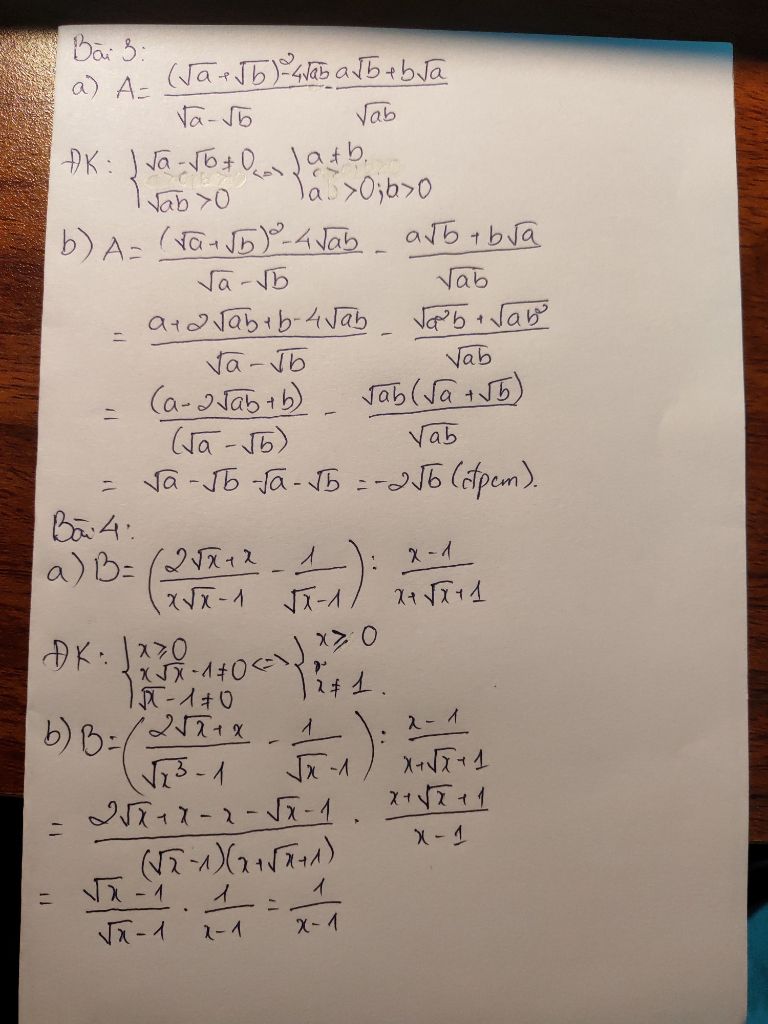 Bài 3:
a) A = ((√a + √b)² - 4√ab)/(√a - √b) - (a√b + b√a)/√ab
ĐK: { √a - √b ≠ 0 ; √ab > 0 <=> { a ≠ b ; a > 0; b > 0
b) A = ((√a + √b)² - 4√ab)/(√a - √b) - (a√b + b√a)/√ab
= (a + 2√ab + b - 4√ab)/(√a - √b) - (√a²b + √ab²)/√ab
= (a - 2√ab + b)/(√a - √b) - √ab(√a + √b)/√ab
= √a - √b - √a - √b = -2√b (đpcm).
Bài 4:
a) B = ((2√x + x)/(x√x - 1) - 1/(√x - 1)) : (x - 1)/(x + √x + 1)
ĐK: { x ≥ 0 ; x√x - 1 ≠ 0 ; √x - 1 ≠ 0 <=> { x ≥ 0 ; x ≠ 1.
b) B = ((2√x + x)/(√x³ - 1) - 1/(√x - 1)) : (x - 1)/(x + √x + 1)
= (2√x + x - x - √x - 1)/((√x - 1)(x + √x + 1)) . (x + √x + 1)/(x - 1)
= (√x - 1)/(√x - 1) . 1/(x - 1) = 1/(x - 1)